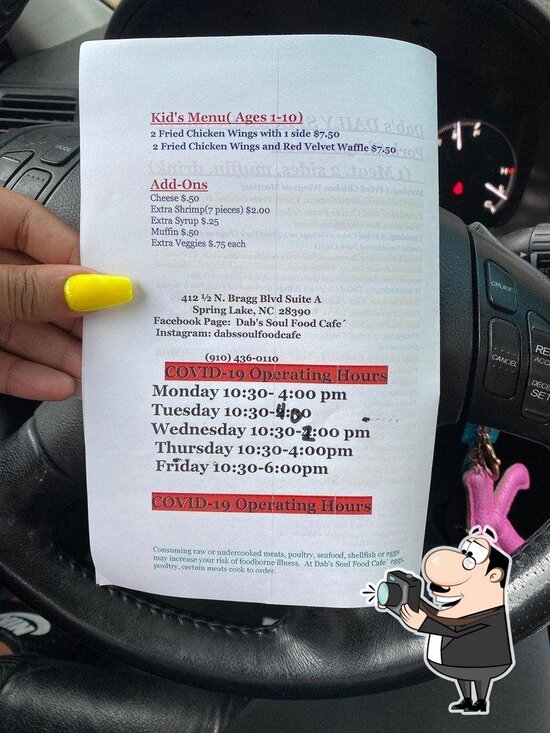 Kid's Menu( Ages 1-10)
2 Fried Chicken Wings with 1 side $7.50
2 Fried Chicken Wings and Red Velvet Waffle $7.50
Add-Ons
Cheese $.50
Extra Shrimp(7 pieces) $2.00
Extra Syrup $.25
Muffin $.50
Extra Veggies $.75 each
412 ½ N. Bragg Blvd Suite A
Spring Lake, NC 28390
Facebook Page: Dab's Soul Food Cafe´
Instagram: dabssoulfoodcafe
(910) 436-0110
COVID-19 Operating Hours
Monday 10:30- 4:00 pm
Tuesday 10:30-4:00
Wednesday 10:30-2:00 pm
Thursday 10:30-4:00pm
Friday 10:30-6:00pm
COVID-19 Operating Hours
Consuming raw or undercooked meats, poultry, seafood, shellfish or eggs
may increase your risk of foodborne illness. At Dab's Soul Food Cafe´ eggs,
poultry, certain meats cook to order.
MODE
CRUISE
CANCEL